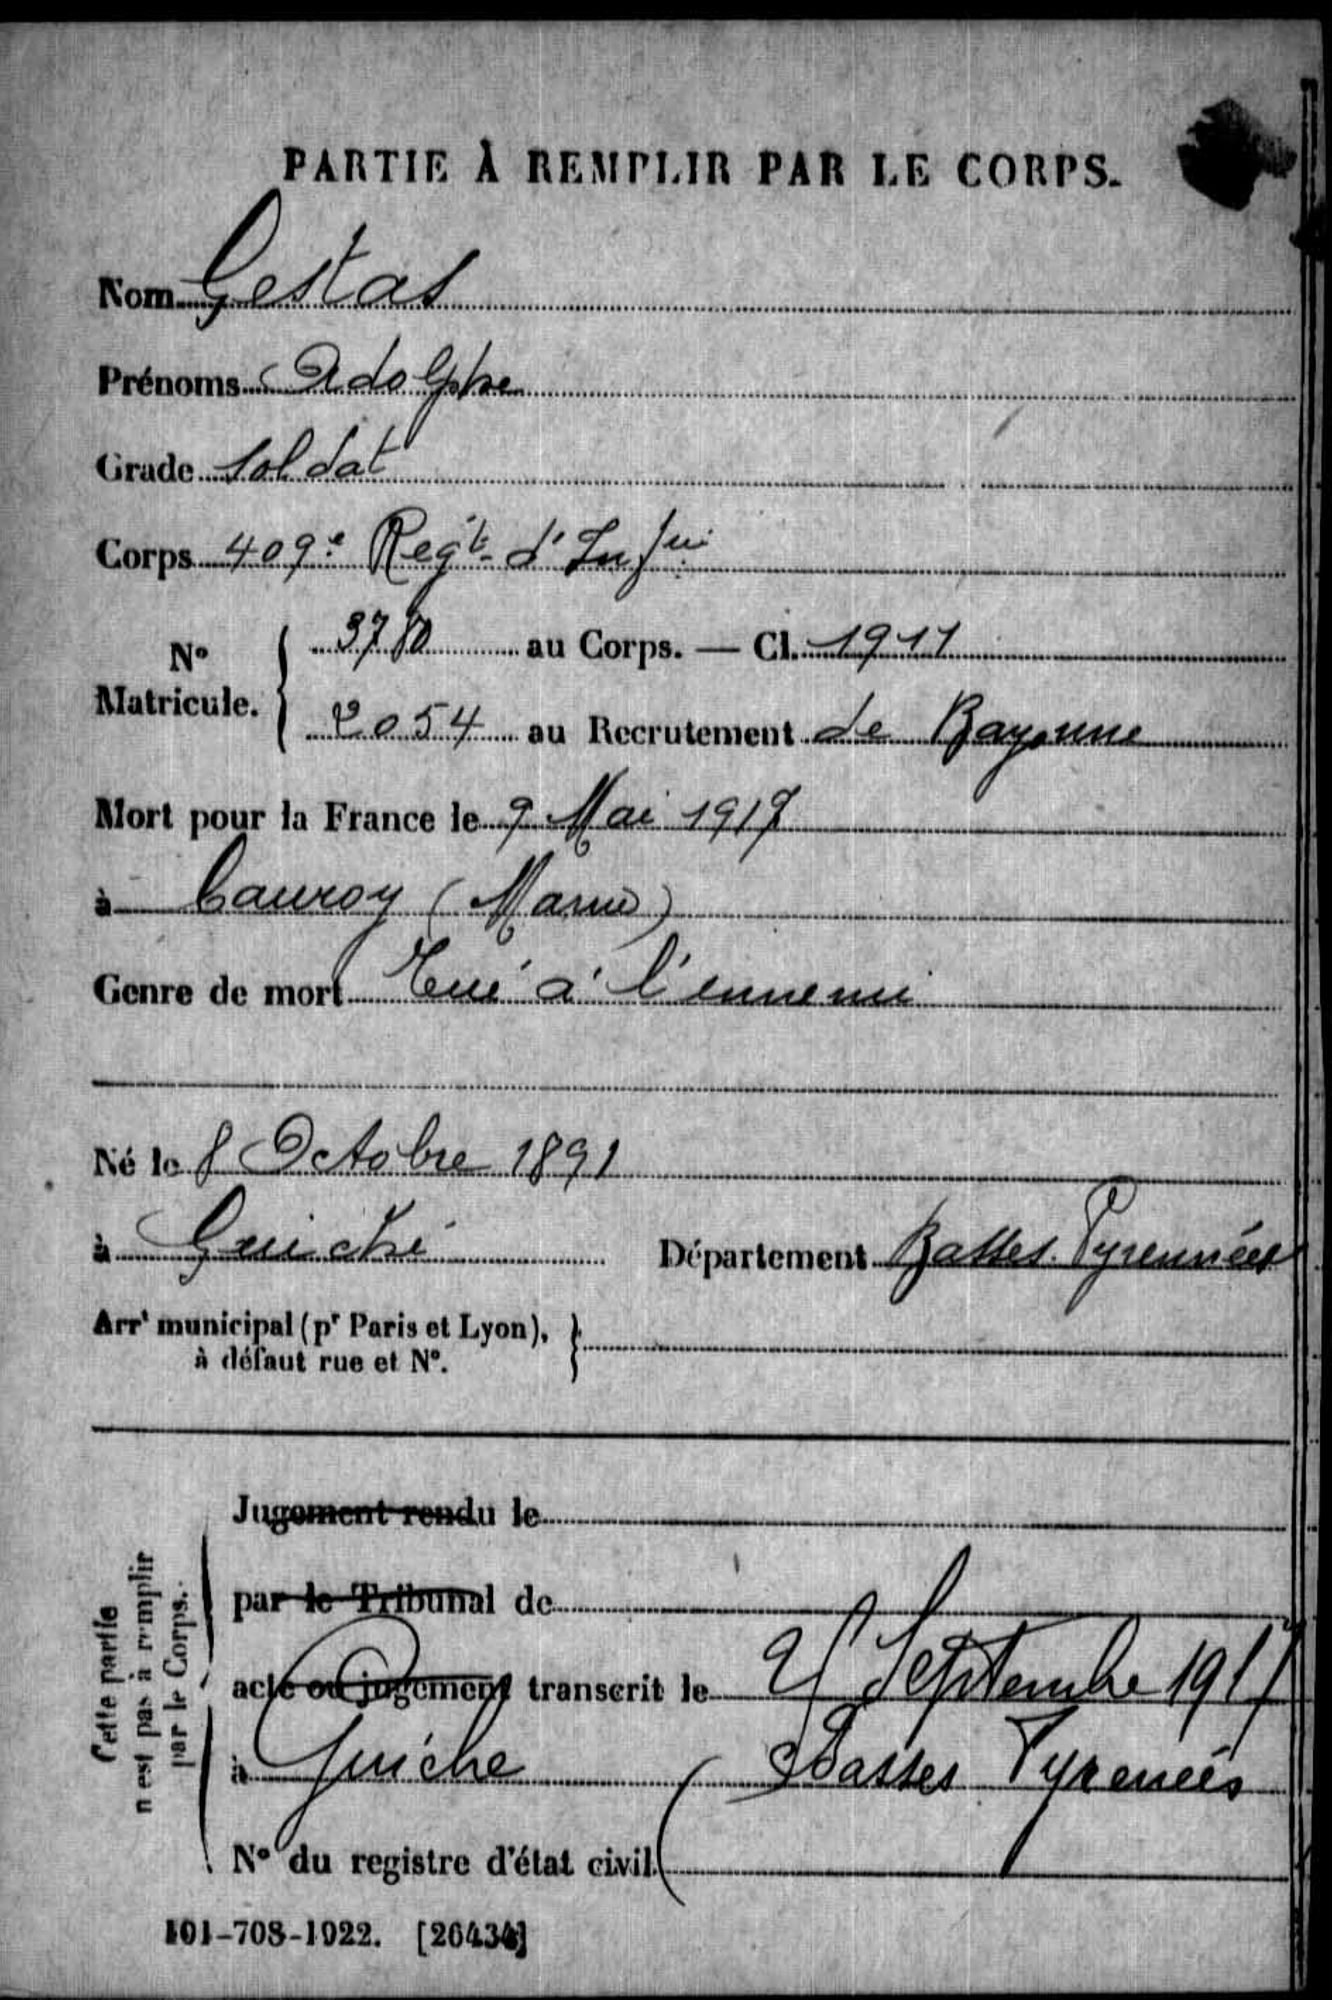 PARTIE À REMPLIR PAR LE CORPS.
Nom Gestas
Prénoms Adolphe
Grade soldat
Corps 409e Regt d'Infie
N° Matricule. 3780 au Corps. — Cl. 1911
2054 au Recrutement de Bayonne
Mort pour la France le 9 Mai 1917
à Cauroy (Marne)
Genre de mort Tué à l'ennemi
Né le 8 Octobre 1891
à Guiche Département Basses Pyrennées
Arrt municipal (pr Paris et Lyon),
à défaut rue et N°.
Cette partie
n'est pas à remplir
par le Corps.
Jugement rendu le
par le Tribunal de
acte ou jugement transcrit le Septembre 1917
à Guiche (Basses Pyrenées
N° du registre d'état civil
101-708-1922. [26434]